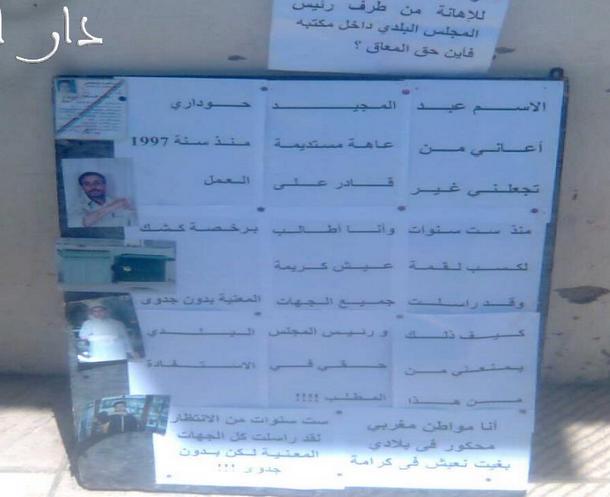 دار ا
للإهانة من طرف رئيس
المجلس البلدي داخل مكتبه
فأين حق المعاق ؟
الاسم عبد المجيد حوداري
أعاني من عاهة مستديمة منذ سنة 1997
تجعلني غير قادر على العمل
منذ ست سنوات وأنا أطالب برخصة كشك
لكسب لقمة عيش كريمة
وقد راسلت جميع الجهات المعنية بدون جدوى
كيف ذلك و رئيس المجلس البلدي
يمنعني من حقي في الاستفادة
من هذا المطلب !!!!
أنا مواطن مغربي
محكور في بلادي
بغيت نعيش في كرامة
ست سنوات من الانتظار
لقد راسلت كل الجهات
المعنية لكن بدون
جدوى !!!